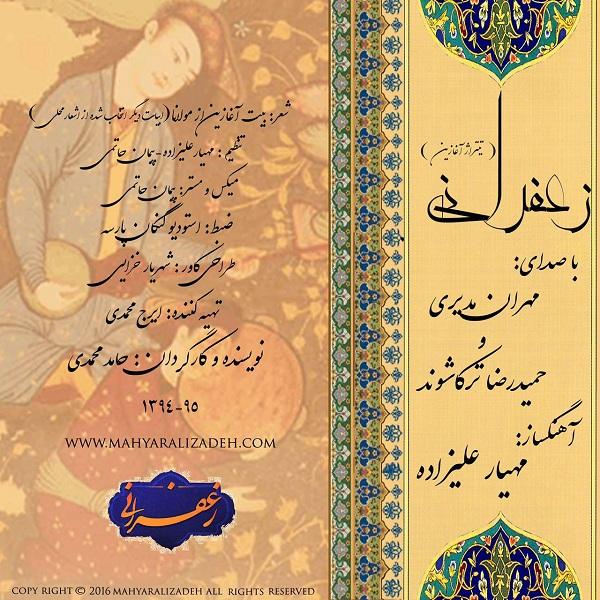 (تیتراژ آغازین)
زعفرانی
با صدای:
مهران مدیری
و
حمیدرضا ترکاشوند
آهنگساز:
مهیار علیزاده
شعر: بیت آغازین از مولانا (ابیات دیگر انتخاب شده از اشعار محلی)
تنظیم: مهیار علیزاده-پیمان حاتمی
میکس و مستر: پیمان حاتمی
ضبط: استودیو گنگان پارسه
طراحی کاور: شهریار خزایی
تهیه کننده: ایرج محمدی
نویسنده و کارگردان: حامد محمدی
۱۳۹۴-۹۵
WWW.MAHYARALIZADEH.COM
زعفرانی
COPY RIGHT © 2016 MAHYARALIZADEH ALL RIGHTS RESERVED